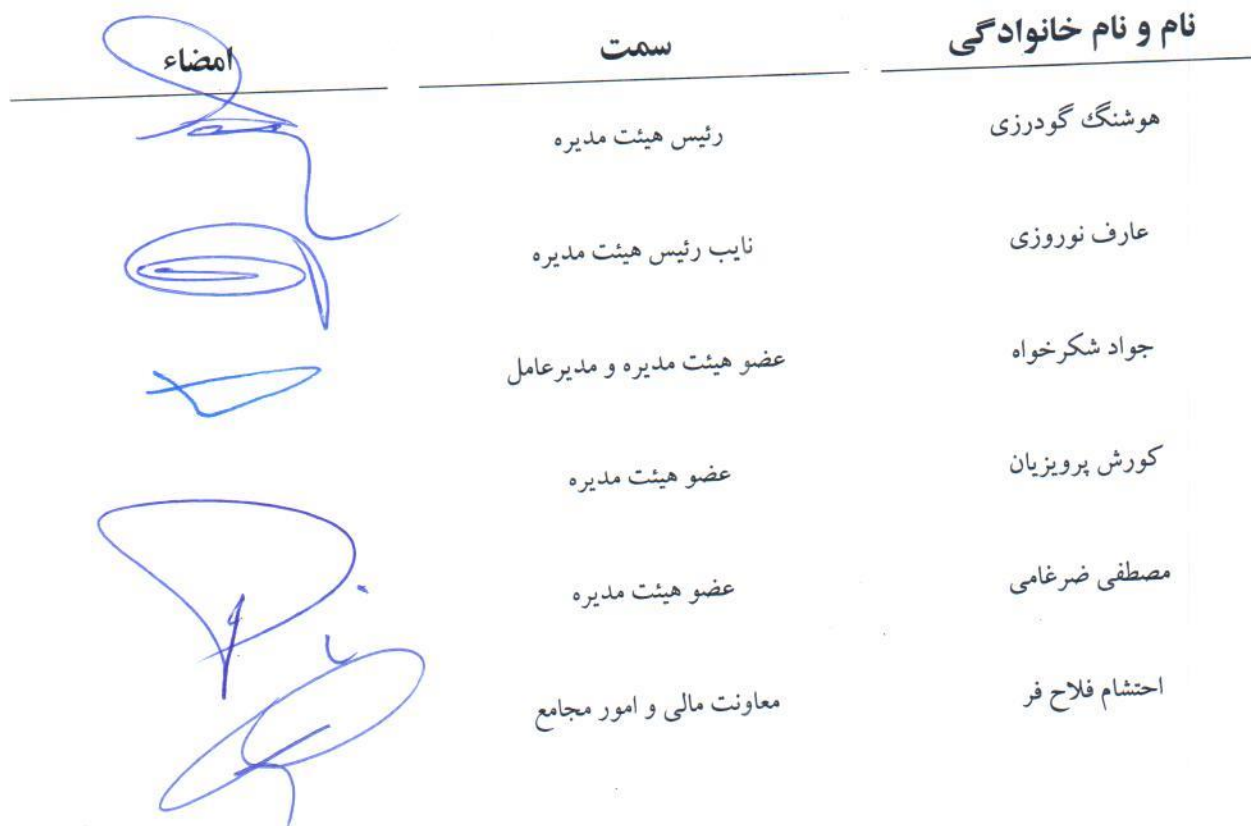 نام و نام خانوادگی سمت امضاء
هوشنگ گودرزی رئیس هیئت مدیره
عارف نوروزی نایب رئیس هیئت مدیره
جواد شکرخواه عضو هیئت مدیره و مدیرعامل
کورش پرویزیان عضو هیئت مدیره
مصطفی ضرغامی عضو هیئت مدیره
احتشام فلاح فر معاونت مالی و امور مجامع